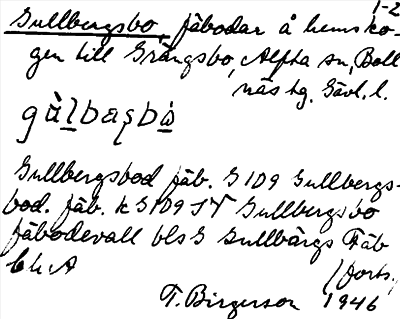 1-2
Gullbergsbo, fäbodar å hemsko-
gen till Grängsbo, Alfta sn, Boll
näs tg. Gävl. l.
gàlbaʂbò
Gullbergsbod fäb. G 109 Gullbergs-
bod. fäb. k G 109 SV Gullbergsbo
fäbodevall bls G Gullbärgs Fäb
(forts.)
T. Birgerson 1946